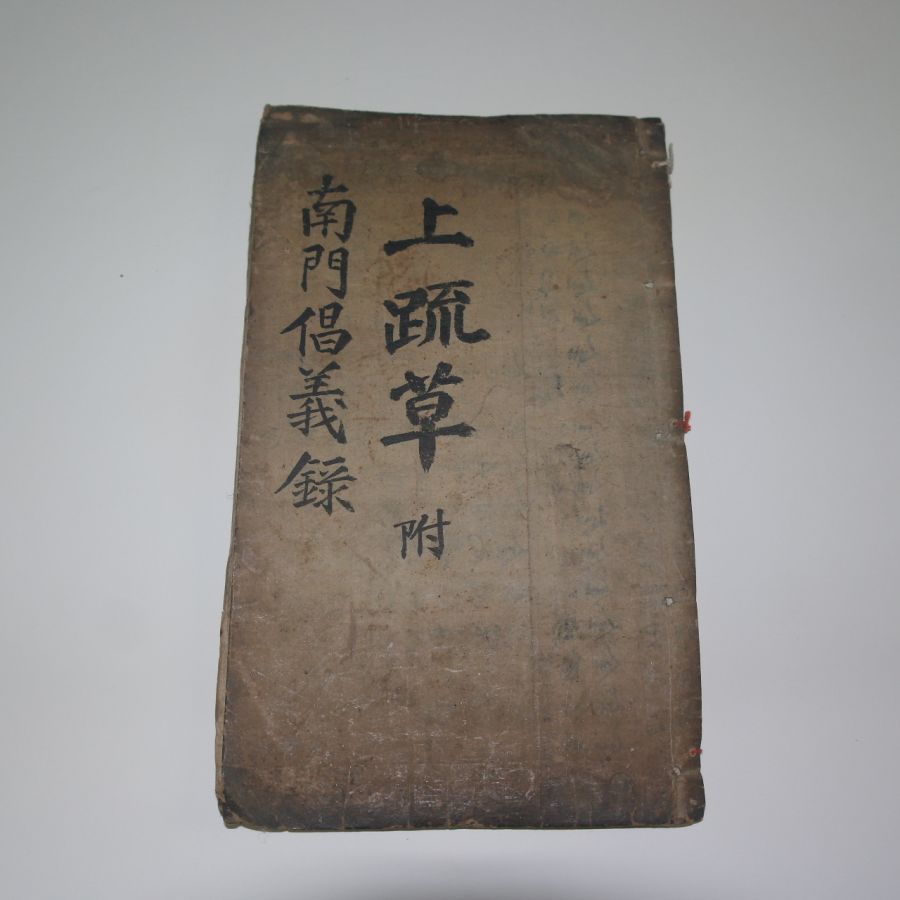 上䟽草 附
南門倡義錄